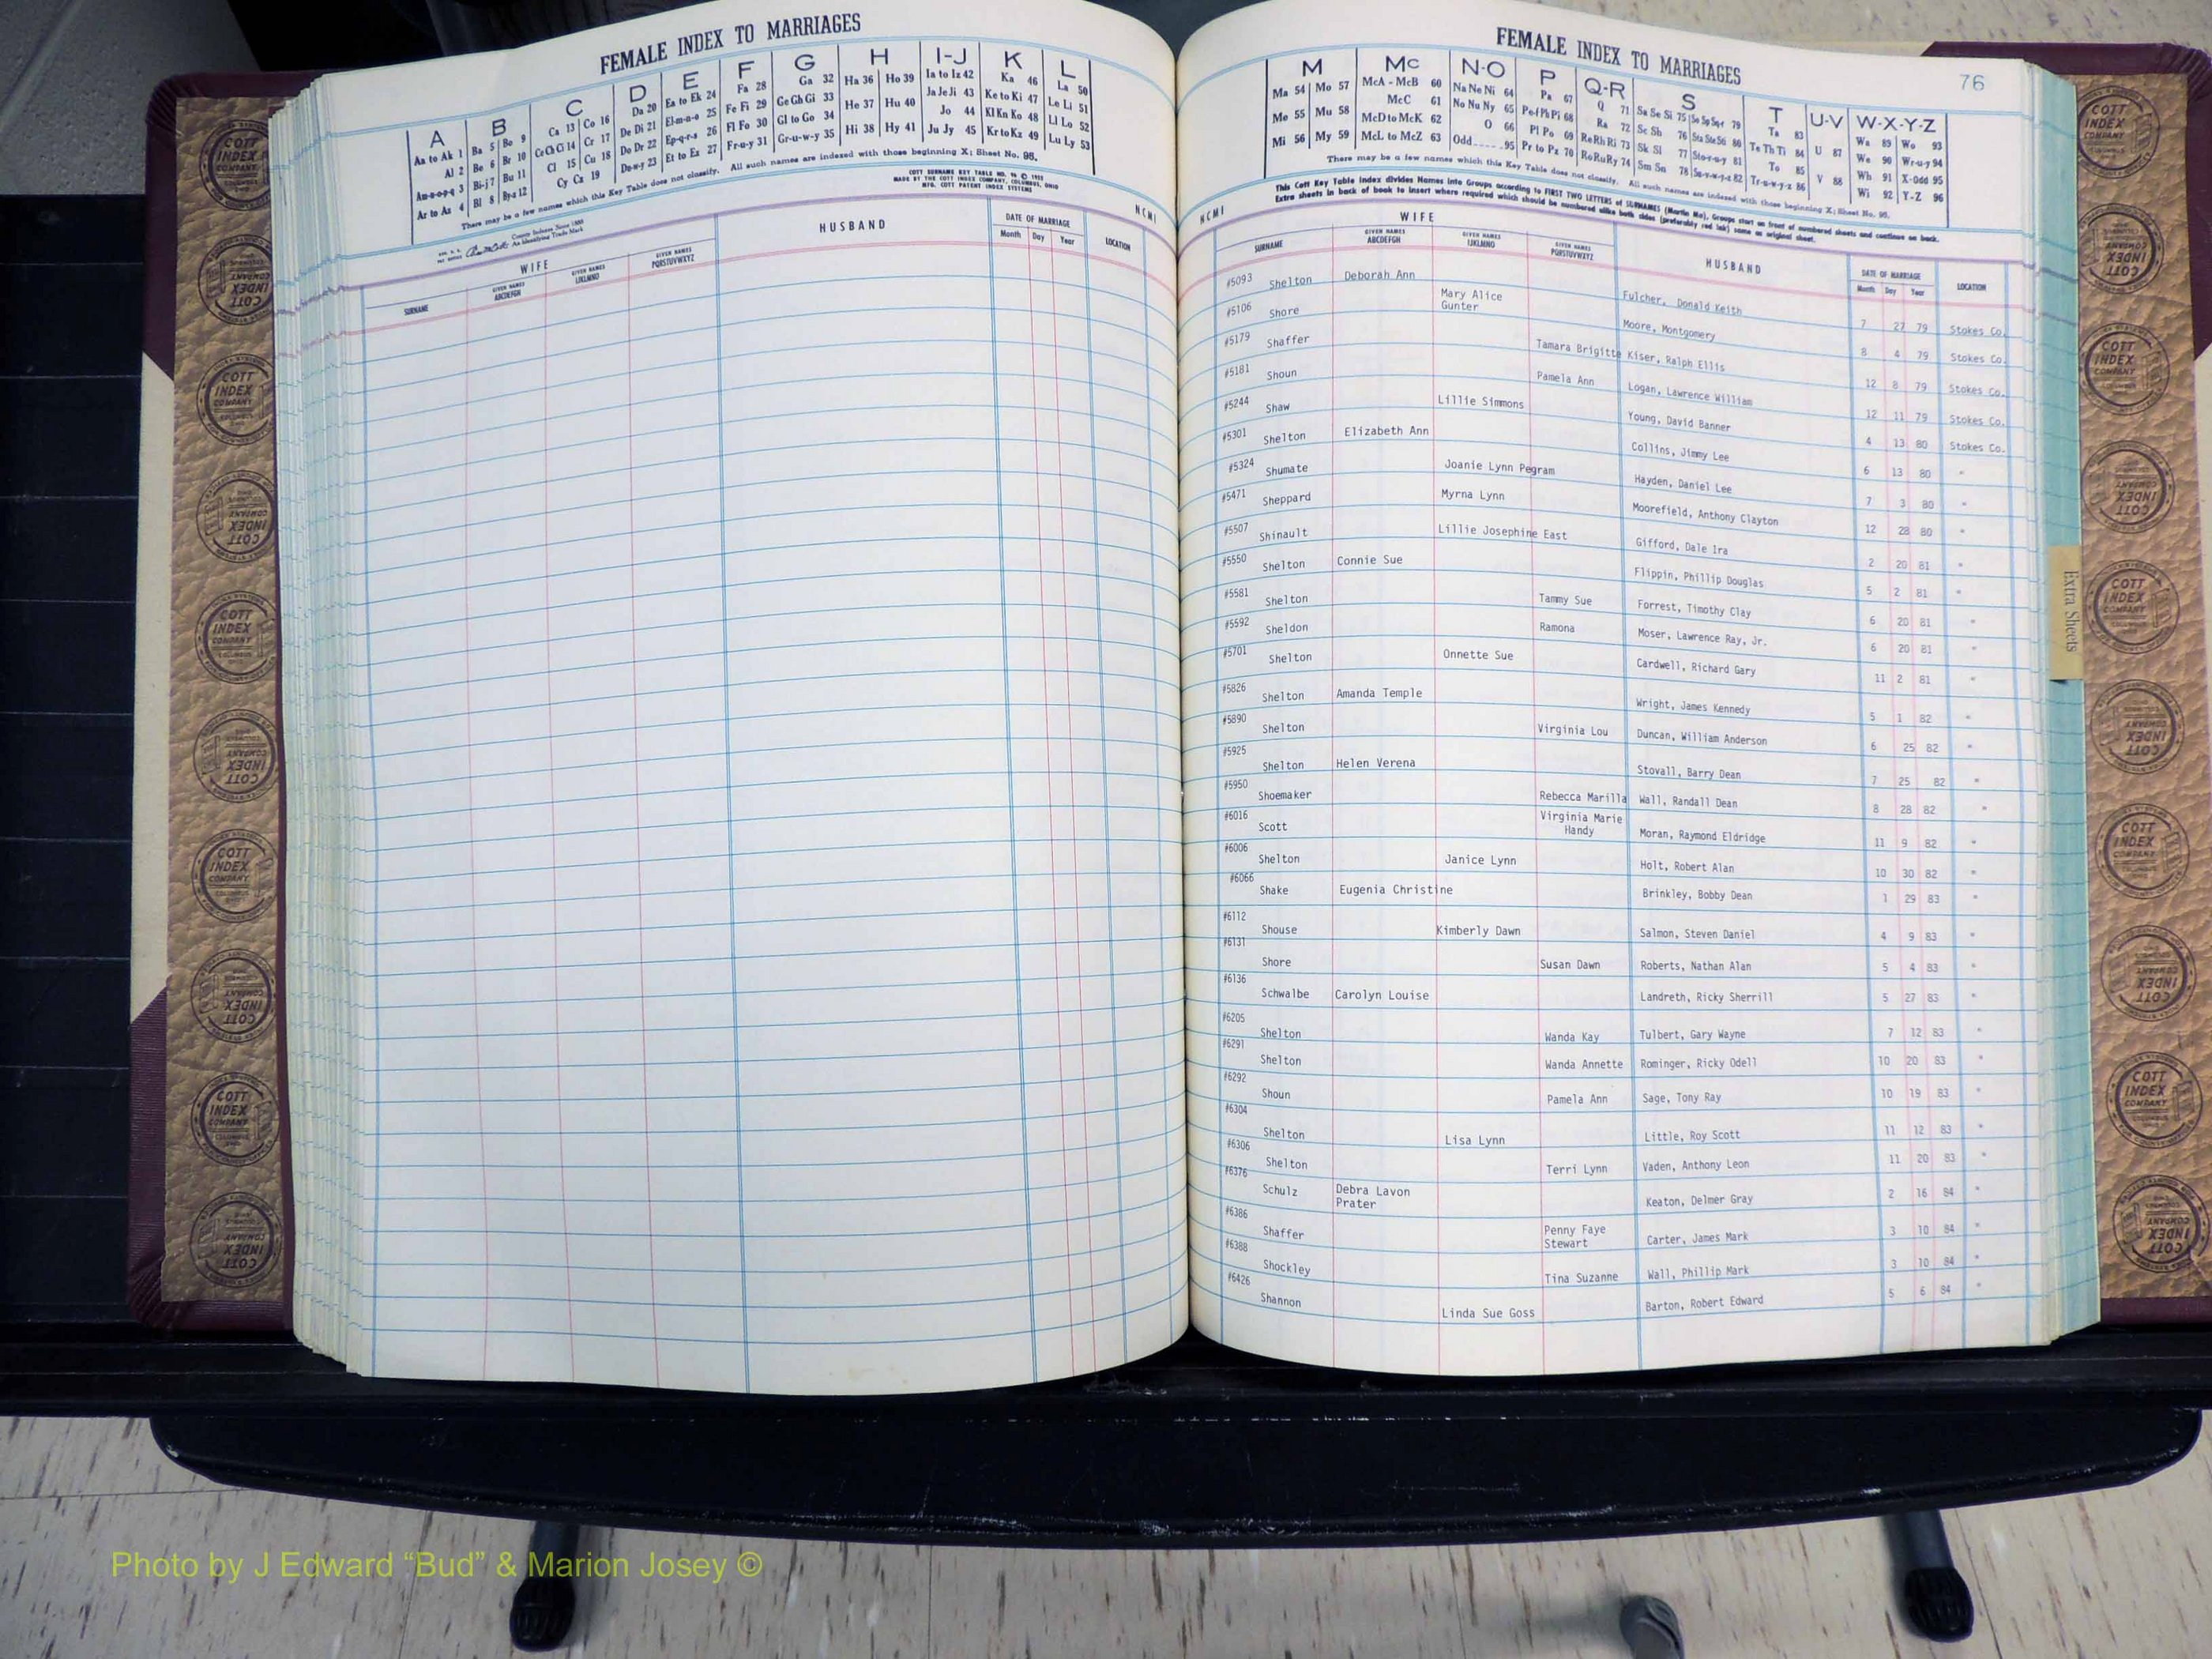 FEMALE INDEX TO MARRIAGES
A B C D E F G H I-J K L
Aa to Ak 1 Ba 5 Bo 9 Ca 13 Co 16 Da 20 Ea to Ek 24 Fa 28 Ga 32 Ha 36 Ho 39 Ia to Iz 42 Ka 46 La 50
Al 2 Be 6 Br 10 Ce Ch Ci 14 Cr 17 De Di 21 El-m-n-o 25 Fe Fi 29 Ge Gh Gi 33 He 37 Hu 40 Ja Je Ji 43 Ke to Ki 47 Le Li 51
Am-n-o-p-q 3 Bi-j 7 Bu 11 Cl 15 Cu 18 Do Dr 22 Ep-q-r-s 26 Fl Fo 30 Gl to Go 34 Hi 38 Hy 41 Jo 44 Kl Kn Ko 48 Ll Lo 52
Ar to Az 4 Bl 8 By-z 12 Cy Cz 19 Du-w-y 23 Et to Ez 27 Fr-u-y 31 Gr-u-w-y 35 Ju Jy 45 Kr to Kz 49 Lu Ly 53
There may be a few names which this Key Table does not classify. All such names are indexed with those beginning X; Sheet No. 95.
MADE BY THE COTT INDEX COMPANY, COLUMBUS, OHIO
MFG. COTT PATENT INDEX SYSTEMS
County Indexes Since 1888
An Identifying Trade Mark
NCMI
WIFE HUSBAND DATE OF MARRIAGE LOCATION
SURNAME GIVEN NAMES ABCDEFGH GIVEN NAMES IJKLMNO GIVEN NAMES PQRSTUVWXYZ Month Day Year
FEMALE INDEX TO MARRIAGES 76
M Mc N-O P Q-R S T U-V W-X-Y-Z
Ma 54 Mo 57 McA - McB 60 Na Ne Ni 64 Pa 67 Q 71 Sa Se Si 75 So Sp Sq-r 79 Ta 83 U 87 Wa 89 Wo 93
Me 55 Mu 58 McC 61 No Nu Ny 65 Pe-f Ph Pi 68 Ra 72 Sc Sh 76 Sta Ste Sti 80 Te Th Ti 84 V 88 We 90 Wr-u-y 94
Mi 56 My 59 McD to McK 62 O 66 Pl Po 69 Re Rh Ri 73 Sk Sl 77 Sto-r-u-y 81 To 85 Wh 91 X-Odd 95
McL to McZ 63 Odd 95 Pr to Pz 70 Ro Ru Ry 74 Sm Sn 78 Su-v-w-y-z 82 Tr-u-w-y-z 86 Wi 92 Y-Z 96
There may be a few names which this Key Table does not classify. All such names are indexed with those beginning X; Sheet No. 95.
This Cott Key Table Index divides Names into Groups according to FIRST TWO LETTERS of SURNAMES (Martin Ma), Groups start on front of numbered sheets and continue on back.
Extra sheets in back of book to insert where required which should be numbered alike both sides (preferably red ink) same as original sheet.
NCMI
WIFE HUSBAND DATE OF MARRIAGE LOCATION
SURNAME GIVEN NAMES ABCDEFGH GIVEN NAMES IJKLMNO GIVEN NAMES PQRSTUVWXYZ Month Day Year
#5093 Shelton Deborah Ann Fulcher, Donald Keith 7 27 79 Stokes Co.
#5106 Shore Mary Alice Gunter Moore, Montgomery 8 4 79 Stokes Co.
#5179 Shaffer Tamara Brigitte Kiser, Ralph Ellis 12 8 79 Stokes Co.
#5181 Shoun Pamela Ann Logan, Lawrence William 12 11 79 Stokes Co.
#5244 Shaw Lillie Simmons Young, David Banner 4 13 80 Stokes Co.
#5301 Shelton Elizabeth Ann Collins, Jimmy Lee 6 13 80 "
#5324 Shumate Joanie Lynn Pegram Hayden, Daniel Lee 7 3 80 "
#5471 Sheppard Myrna Lynn Moorefield, Anthony Clayton 12 28 80 "
#5507 Shinault Lillie Josephine East Gifford, Dale Ira 2 20 81 "
#5550 Shelton Connie Sue Flippin, Phillip Douglas 5 2 81 "
#5581 Shelton Tammy Sue Forrest, Timothy Clay 6 20 81 "
#5592 Sheldon Ramona Moser, Lawrence Ray, Jr. 6 20 81 "
#5701 Shelton Onnette Sue Cardwell, Richard Gary 11 2 81 "
#5826 Shelton Amanda Temple Wright, James Kennedy 5 1 82 "
#5890 Shelton Virginia Lou Duncan, William Anderson 6 25 82 "
#5925 Shelton Helen Verena Stovall, Barry Dean 7 25 82 "
#5950 Shoemaker Rebecca Marilla Wall, Randall Dean 8 28 82 "
#6016 Scott Virginia Marie Handy Moran, Raymond Eldridge 11 9 82 "
#6006 Shelton Janice Lynn Holt, Robert Alan 10 30 82 "
#6066 Shake Eugenia Christine Brinkley, Bobby Dean 1 29 83 "
#6112 Shouse Kimberly Dawn Salmon, Steven Daniel 4 9 83 "
#6131 Shore Susan Dawn Roberts, Nathan Alan 5 4 83 "
#6136 Schwalbe Carolyn Louise Landreth, Ricky Sherrill 5 27 83 "
#6205 Shelton Wanda Kay Tulbert, Gary Wayne 7 12 83 "
#6291 Shelton Wanda Annette Rominger, Ricky Odell 10 20 83 "
#6292 Shoun Pamela Ann Sage, Tony Ray 10 19 83 "
#6304 Shelton Lisa Lynn Little, Roy Scott 11 12 83 "
#6306 Shelton Terri Lynn Vaden, Anthony Leon 11 20 83 "
#6376 Schulz Debra Lavon Prater Keaton, Delmer Gray 2 16 84 "
#6386 Shaffer Penny Faye Stewart Carter, James Mark 3 10 84 "
#6388 Shockley Tina Suzanne Wall, Phillip Mark 3 10 84 "
#6426 Shannon Linda Sue Goss Barton, Robert Edward 5 6 84 "
Extra Sheets
COTT INDEX COMPANY
Photo by J Edward “Bud” & Marion Josey ©